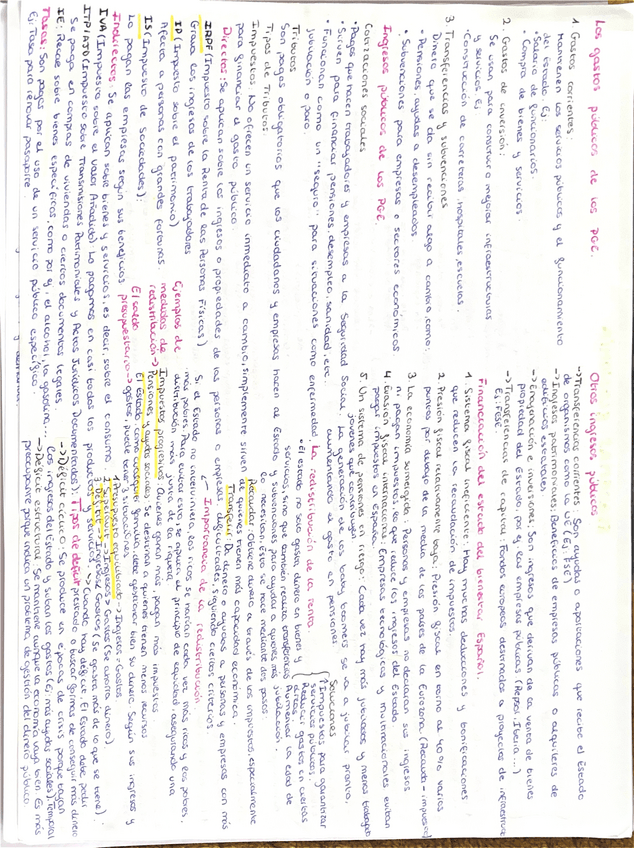 Los gastos públicos de los PGE
1 Gastos corrientes:
Mantienen los servicios públicos y el funcionamiento
del estado. Ej:
·Salario de funcionarios.
·Compra de bienes y servicios.
2 Gastos de inversión:
Se usan para construir o mejorar infraestructuras
y servicios Ej:
·Construcción de carreteras, hospitales, escuelas.
3 Transferencias y subvenciones
Dinero que se da sin recibir algo a cambio, como:
·Pensiones, ayudas a desempleados
·Subvenciones para empresas o sectores económicos
Ingresos públicos de los PGE.
Cotizaciones sociales
·Pagos que hacen trabajadores y empresas a la Seguridad Social.
·Sirven para financiar pensiones, desempleo, sanidad, etc.
·Funcionan como un "seguro" para situaciones como enfermedad,
jubilación o paro.
Tributos
Son pagos obligatorios que los ciudadanos y empresas hacen al Estado
Tipos de Tributos:
Impuestos: No ofrecen un servicio inmediato a cambio, simplemente sirven
para financiar el gasto público
Directos: Se aplican sobre los ingresos o propiedades de las personas o empresas
IRPF (Impuesto sobre la Renta de las Personas Físicas)
Grava los ingresos de los trabajadores
IP (Impuesto sobre el patrimonio)
Afecta a personas con grandes fortunas
IS (Impuesto de sociedades):
Lo pagan las empresas según sus beneficios
Indirectos: Se aplican sobre bienes y servicios, es decir, sobre el consumo
IVA (Impuesto sobre el Valor Añadido): Lo pagamos en casi todos los productos y servicios.
ITP/AJD (Impuesto sobre Transmisiones Patrimoniales y Actos Jurídicos Documentados):
Se pagan en compras de viviendas o ciertos documentos legales.
IE: Recae sobre bienes específicos, como por ej, el alcohol, la gasolina...
Tasas: Son pagos por el uso de un servicio público específico.
Ej: Tasa para renovar pasaporte
Otros ingresos públicos
→Transferencias corrientes: Son ayudas o aportaciones que recibe el Estado
de organismos como la UE (Ej: FSE)
→Ingresos patrimoniales: Beneficios de empresas públicas o alquileres de
edificios estatales.
→Enajenación e inversiones: Son ingresos que derivan de la venta de bienes
propiedad del Estado, por ej las empresas públicas (Repsol, Iberia...)
→Transferencias de capital: Fondos europeos destinados a proyectos de infraestructura
Ej: FSE
Financiación del estado del bienestar Español.
1 Sistema fiscal ineficiente: Hay muchas deducciones y bonificaciones
que reducen la recaudación de impuestos.
2 Presión fiscal relativamente baja: Presión fiscal en torno al 40% varios
puntos por debajo de la media de los países de la Eurozona.
3 La economía sumergida: Personas y empresas no declaran sus ingresos
ni pagan impuestos, lo que reduce los ingresos del Estado
4 Evasión fiscal internacional: Empresas tecnológicas y multinacionales evitan
pagar impuestos en España.
5 Un sistema de pensiones en riesgo: Cada vez hay más jubilados y menos
jóvenes que contribuyen.
La generación de los baby boomers se va a jubilar pronto,
aumentando el gasto en pensiones.
Soluciones
Impuestos para garantizar
servicios públicos.
Reducir gastos en ciertas
áreas
Aumentar la edad de
jubilación.
La redistribución de la renta
·El estado no solo gasta dinero en bienes y
servicios, sino que también realiza transferencias
y subvenciones para ayudar a quienes más
lo necesitan. Esto se hace mediante dos pasos
Recaudar: Obtiene dinero a través de los impuestos, especialmente
de quienes tienen más capacidad económica.
Transferir: Da dinero o ayudas a personas y empresas con más
dificultades, siguiendo ciertos criterios.
Importancia de la redistribución
Si el Estado no interviniera, los ricos se harían cada vez más ricos y los pobres,
más pobres. Para evitar esto, se aplica el principio de equidad, asegurando una
distribución más justa de la riqueza
Ejemplos de medidas de redistribución
→Impuestos progresivos: Quienes ganan más pagan más impuestos
Pensiones y ayudas sociales: Se destinan a quienes tienen menos recursos
El saldo presupuestario→
El Estado, como cualquier familia, debe gestionar bien su dinero. Según sus ingresos y
gastos, puede tener 3 situaciones:
1 Presupuesto equilibrado → Ingresos = Gastos
2 Superávit → Ingresos > Gastos (Se ahorra dinero).
3 Déficit → Ingresos < Gastos (Se gasta más de lo que se tiene).
→Cuando hay déficit, el Estado debe pedir
prestado o buscar formas de conseguir más dinero
Tipos de déficit
→Déficit cíclico: Se produce en épocas de crisis porque bajan
los ingresos del Estado y suben los gastos (Ej: más ayudas sociales). Temporal
→Déficit estructural: Se mantiene aunque la economía vaya bien. Es más
preocupante porque indica un problema de gestión del dinero público